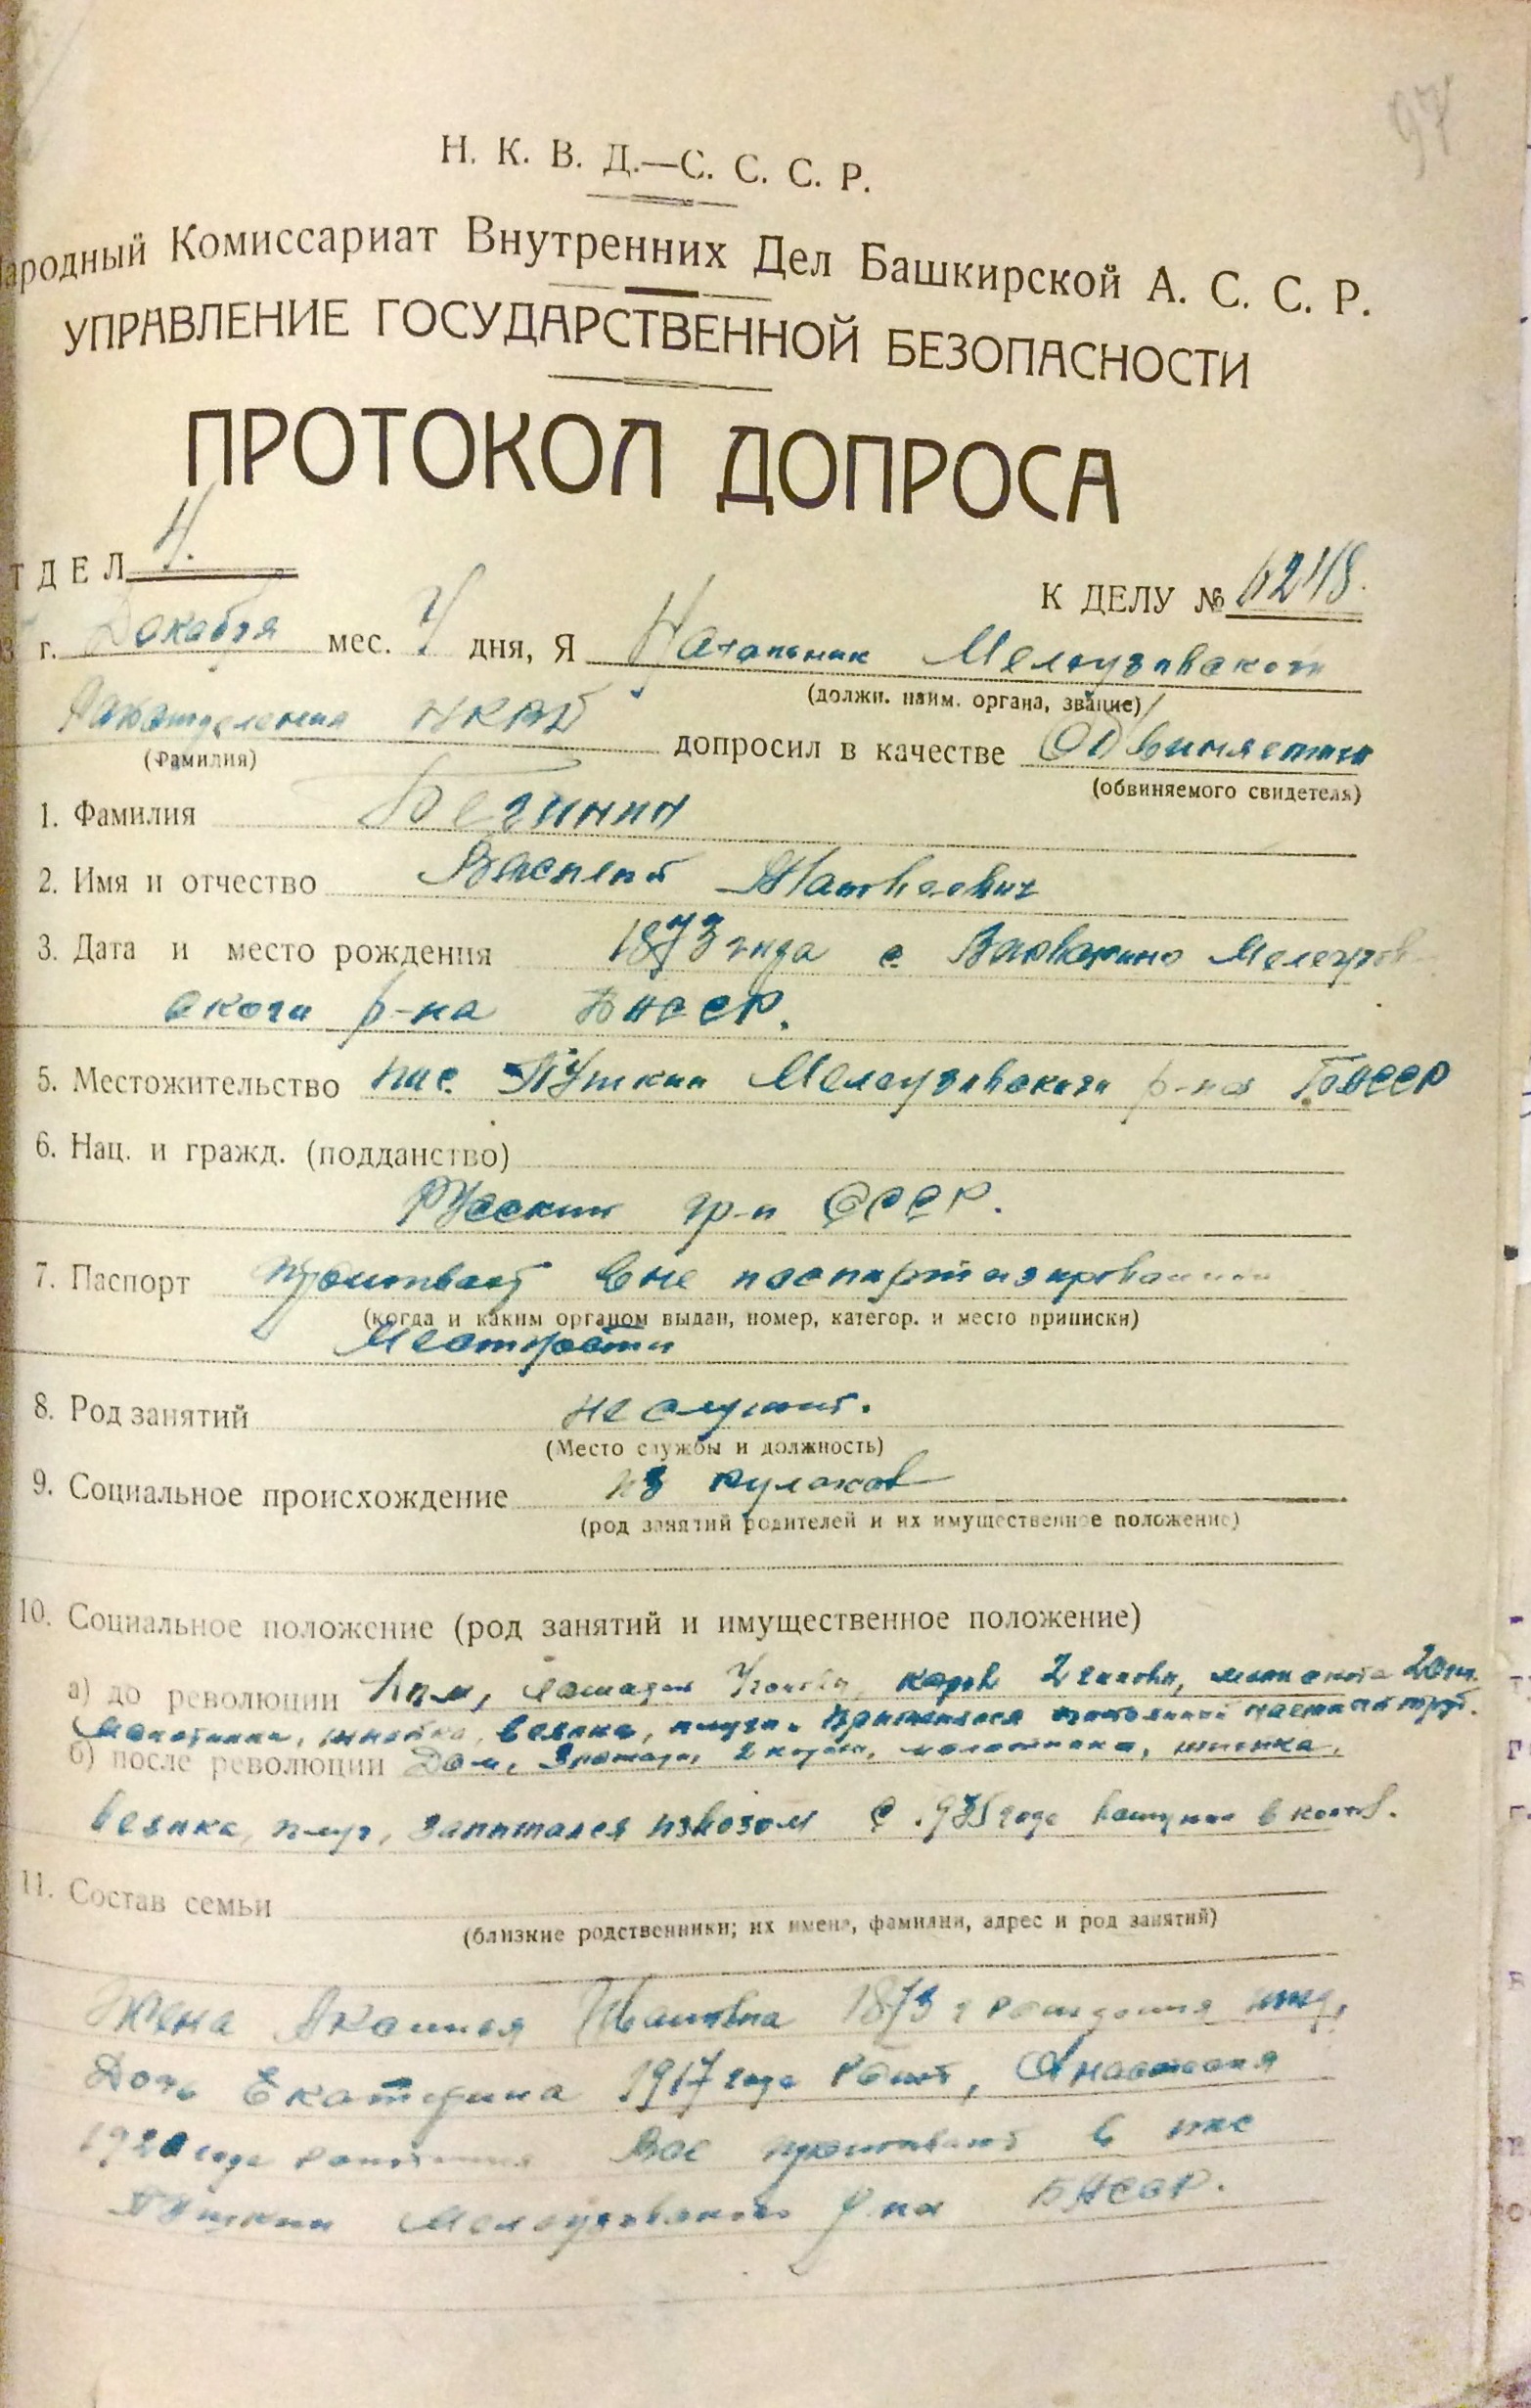 97
Н. К. В. Д.—С. С. С. Р.
Народный Комиссариат Внутренних Дел Башкирской А. С. С. Р.
УПРАВЛЕНИЕ ГОСУДАРСТВЕННОЙ БЕЗОПАСНОСТИ
ПРОТОКОЛ ДОПРОСА
ТДЕЛ 4.
К ДЕЛУ № 6248.
г. Декабря мес. 4 дня, Я Начальник Мелеузовского
(должн. наим. органа, звание)
Райотделения НКВД допросил в качестве Обвиняемого
(Фамилия)
(обвиняемого свидетеля)
1. Фамилия Бегинин
2. Имя и отчество Василий Матвеевич
3. Дата и место рождения 1873 года с. Варварино Мелеузов
ского р-на БАССР.
5. Местожительство пос. Пушкин Мелеузовского р-на БАССР
6. Нац. и гражд. (подданство)
Русский гр-н СССР.
7. Паспорт Проживает вне паспортизированной
(когда и каким органом выдан, номер, категор. и место приписки)
Местности
8. Род занятий не служит.
(Место службы и должность)
9. Социальное происхождение из кулаков
(род занятий родителей и их имущественное положение)
10. Социальное положение (род занятий и имущественное положение)
а) до революции лошадей коров 2 головы, мелк. скота 20 шт.
Молотилка, жнейка, веялка, плуги. наемный труд.
б) после революции Дом, 3 лошади, 2 коровы, молотилка,
веялка, плуг, занимался извозом С 1935 года вступил в колхоз.
11. Состав семьи
(близкие родственники; их имена, фамилии, адрес и род занятий)
Жена Ивановна 1873 г рождения ижд,
Дочь Екатерина 1917 года рожд, Анастасия
1920 года рождения Все проживают в пос
Пушкин Мелеузовского р-на БАССР.